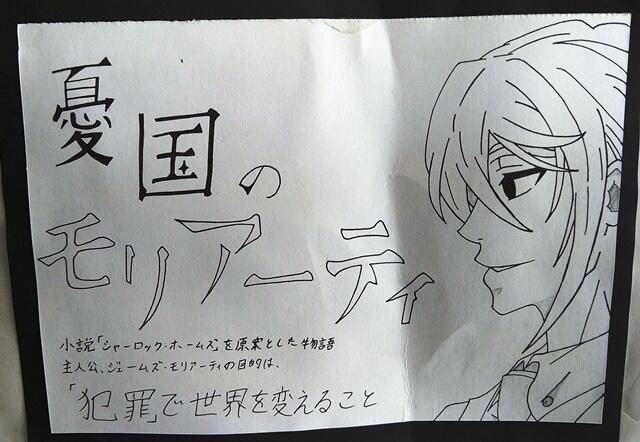 憂国の
モリアーティ
小説「シャーロック・ホームズ」を原案とした物語
主人公、ジェームズ・モリアーティの目的は、
「犯罪」で世界を変えること